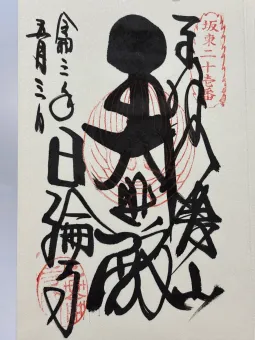 坂東二十壱番
奉拝 八溝山
大悲殿
日輪寺
令和三年
五月三日